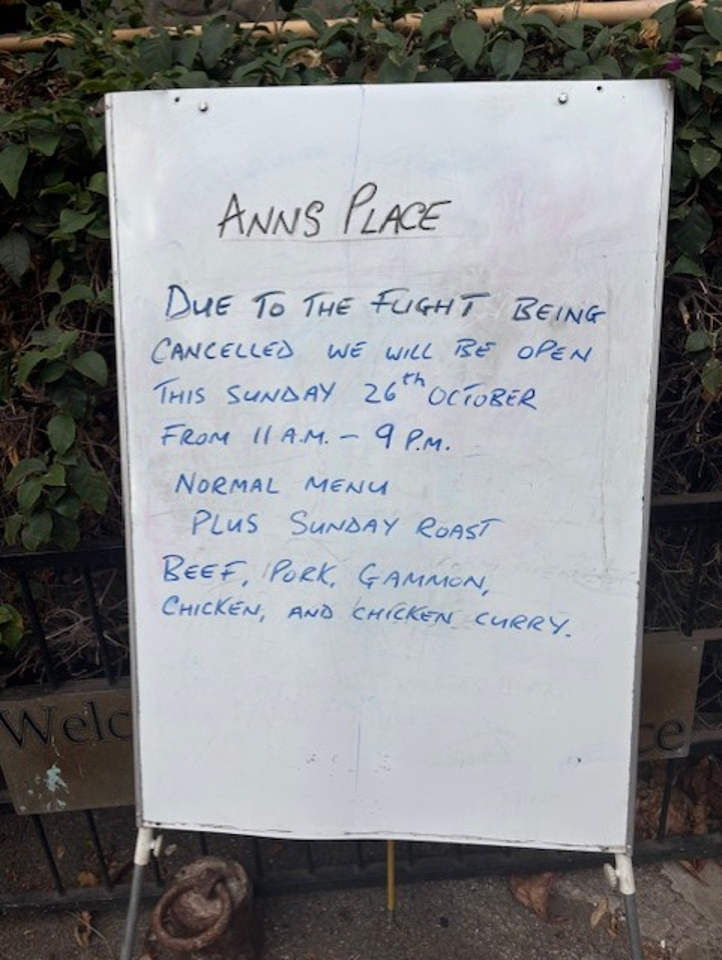 ANNS PLACE
DUE TO THE FLIGHT BEING
CANCELLED WE WILL BE OPEN
THIS SUNDAY 26th OCTOBER
FROM 11 A.M. - 9 P.M.
NORMAL MENU
PLUS SUNDAY ROAST
BEEF, PORK, GAMMON,
CHICKEN, AND CHICKEN CURRY.
Welc
ce